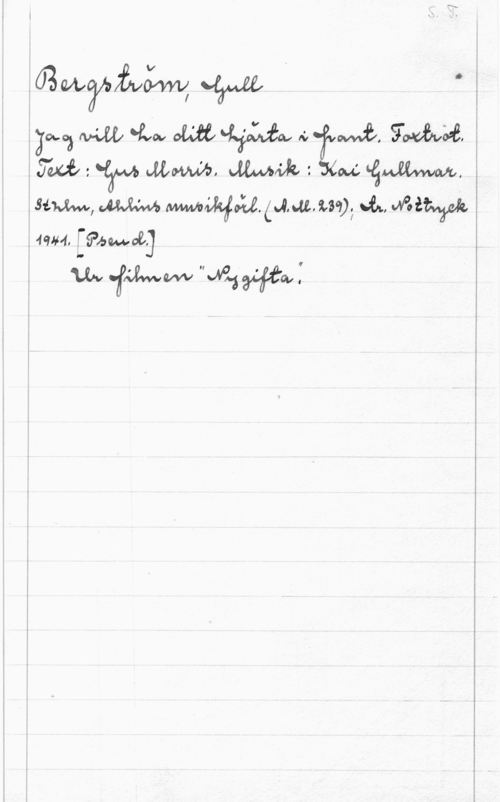 S. T.
Bergström, Gull
Jag vill ha ditt hjärta i pant. Foxtrot.
Text: Gus Morris. Musik: Kai Gullmar.
Sthlm, Ahlins musikförl. (A.M. 239); tr. Nottryck
1941. [Pseud.]
Ur filmen "Nygifta".